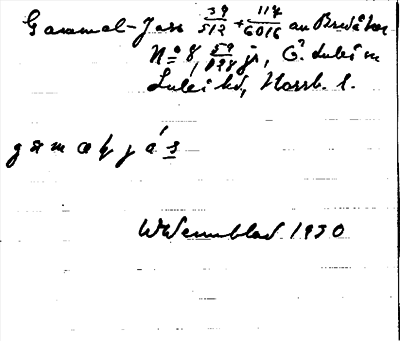 Gammel-Jans 39/512 + 114/6016 an Bredåker
No 8, 59/028 jr, Ö. Luleå m
Luleå kd, Norrb. l.
gamaḷjás
W Wennblad 1930